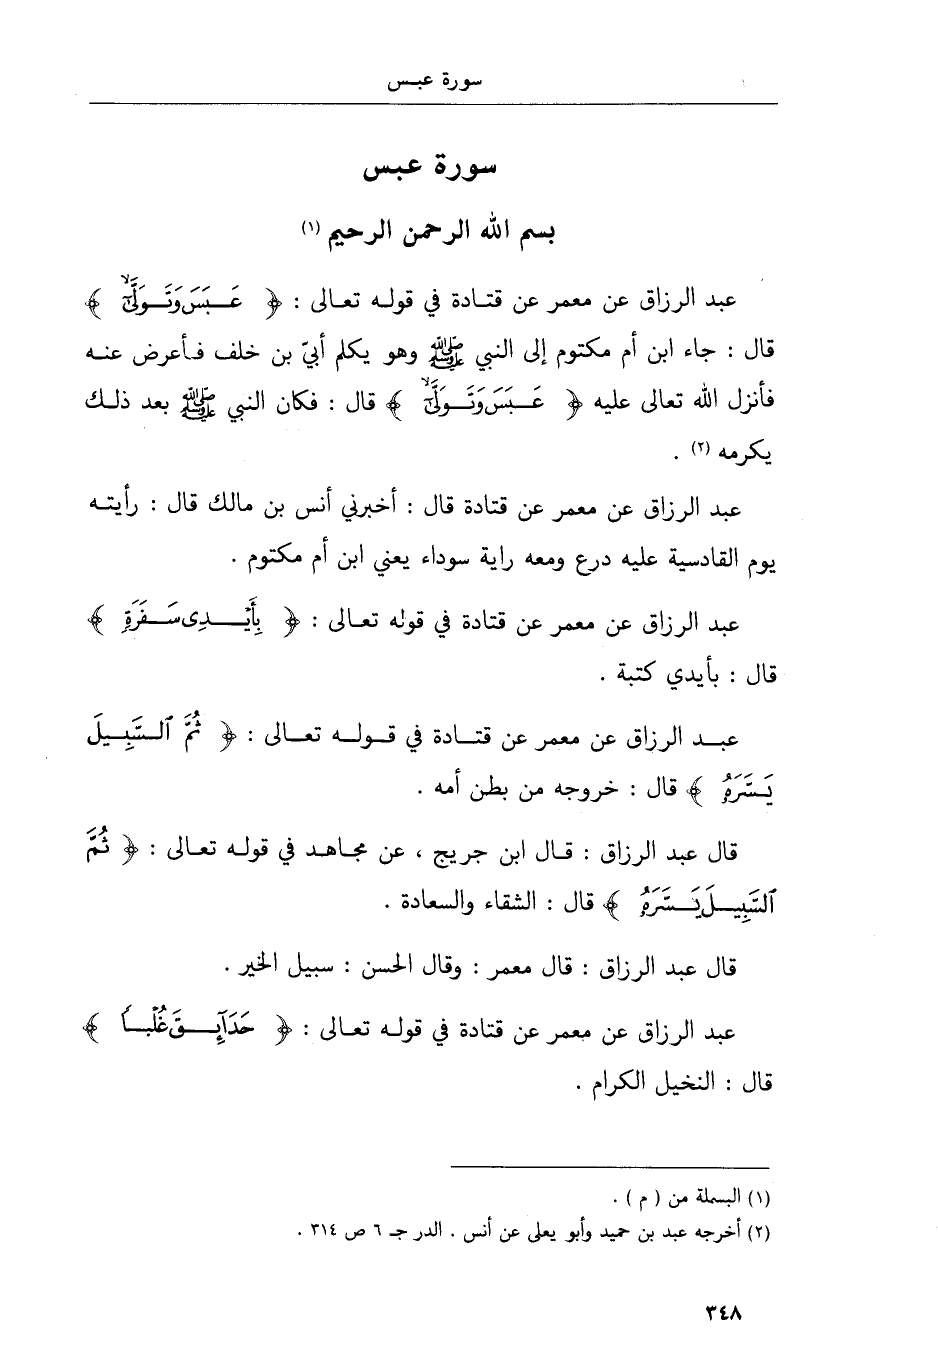 سورة عبس
سورة عبس
بسم الله الرحمن الرحيم (١)
عبد الرزاق عن معمر عن قتادة في قوله تعالى : ﴿ عَبَسَ وَتَوَلَّىٰٓ ﴾
قال : جاء ابن أم مكتوم إلى النبي ﷺ وهو يكلم أبيّ بن خلف فأعرض عنه
فأنزل الله تعالى عليه ﴿ عَبَسَ وَتَوَلَّىٰٓ ﴾ قال : فكان النبي ﷺ بعد ذلك
يكرمه (٢) .
عبد الرزاق عن معمر عن قتادة قال : أخبرني أنس بن مالك قال : رأيته
يوم القادسية عليه درع ومعه راية سوداء يعني ابن أم مكتوم .
عبد الرزاق عن معمر عن قتادة في قوله تعالى : ﴿ بِأَيْدِى سَفَرَةٍ ﴾
قال : بأيدي كتبة .
عبد الرزاق عن معمر عن قتادة في قوله تعالى : ﴿ ثُمَّ ٱلسَّبِيلَ
يَسَّرَهُۥ ﴾ قال : خروجه من بطن أمه .
قال عبد الرزاق : قال ابن جريج ، عن مجاهد في قوله تعالى : ﴿ ثُمَّ
ٱلسَّبِيلَ يَسَّرَهُۥ ﴾ قال : الشقاء والسعادة .
قال عبد الرزاق : قال معمر : وقال الحسن : سبيل الخير .
عبد الرزاق عن معمر عن قتادة في قوله تعالى : ﴿ حَدَآئِقَ غُلْبًا ﴾
قال : النخيل الكرام .
(١) البسملة من ( م ) .
(٢) أخرجه عبد بن حميد وأبو يعلى عن أنس . الدر جـ ٦ ص ٣١٤ .
٣٤٨